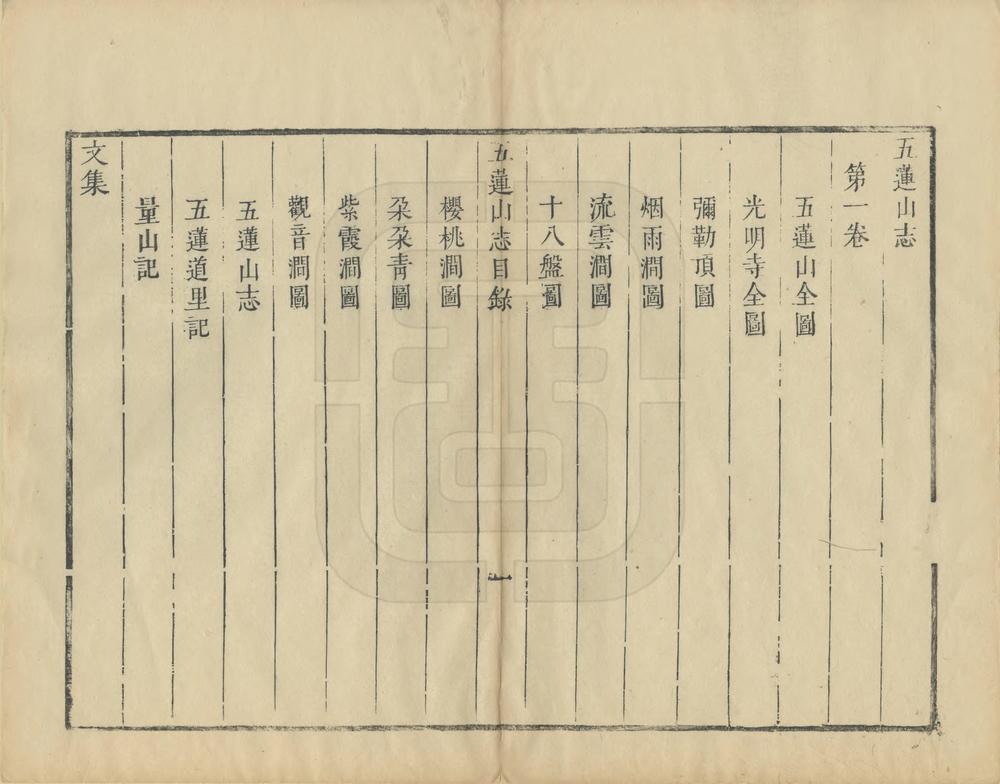 五蓮山志
第一卷
五蓮山全圖
光明寺全圖
彌勒頂圖
烟雨澗圖
流雲澗圖
十八盤圖
五蓮山志目錄
一
櫻桃澗圖
朶朶青圖
紫霞澗圖
觀音澗圖
五蓮山志
五蓮道里記
量山記
文集